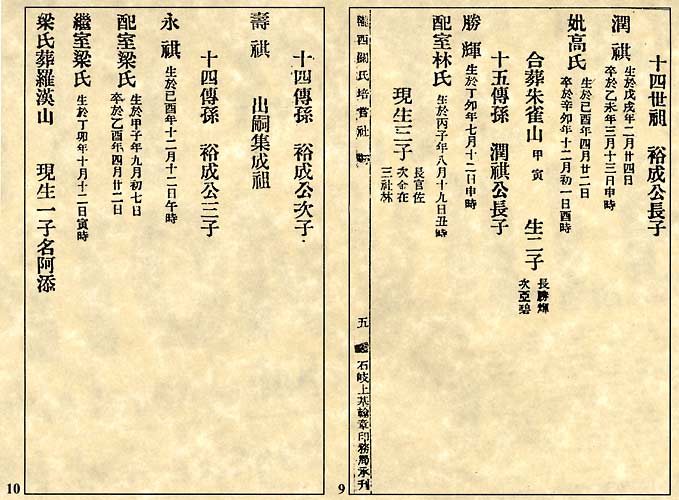 十四世祖 裕成公長子
潤祺 生於戊戌年二月廿四日
卒於乙未年三月十三日申時
妣高氏 生於己酉年四月廿二日
卒於辛卯年十二月初一日酉時
合葬朱雀山 甲寅 生二子 長勝輝
次亞碧
十五傳孫 潤祺公長子
勝輝 生於丁卯年七月十二日申時
配室林氏 生於丙子年八月十九日丑時
現生三子 長官佐
次金在
三社林
隴西關氏培嘗社
五
石岐上基翰章印務局承刊
9
十四傳孫 裕成公次子
壽祺 出嗣集成祖
十四傳孫 裕成公三子
永祺 生於己酉年十二月十二日午時
配室梁氏 生於甲子年九月初七日
卒於乙酉年四月廿二日
繼室梁氏 生於丁卯年十月十二日寅時
梁氏葬羅漢山 現生一子名阿添
10